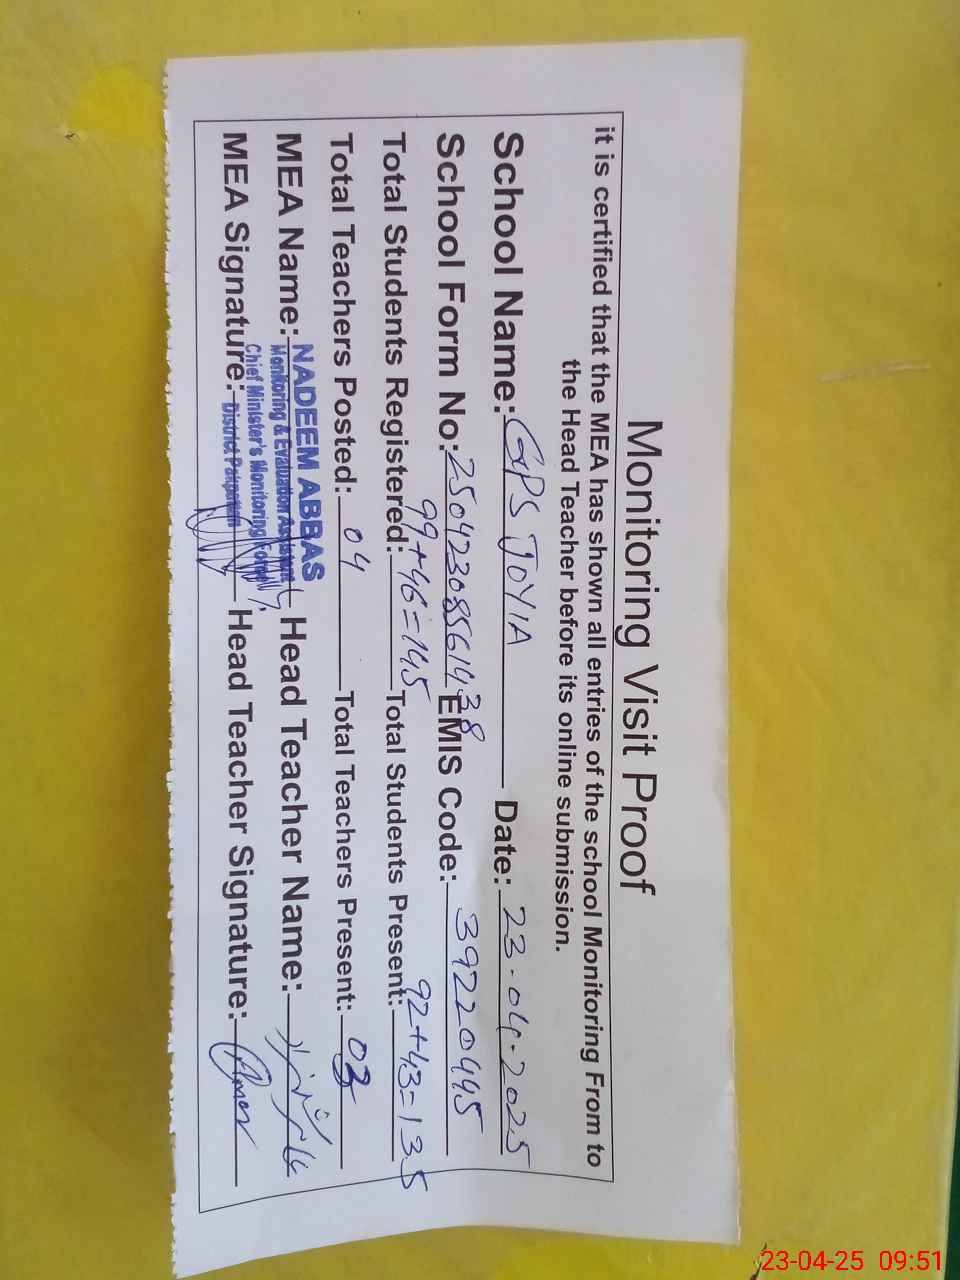 Monitoring Visit Proof
it is certified that the MEA has shown all entries of the school Monitoring From to
the Head Teacher before its online submission.
School Name: GPS JOYIA Date: 23.04.2025
School Form No: 25042308561438 EMIS Code: 39220445
Total Students Registered: 99+46=145 Total Students Present: 92+43=135
Total Teachers Posted: 04 Total Teachers Present: 03
MEA Name: NADEEM ABBAS Head Teacher Name:
Monitoring & Evaluation Assistant
Chief Minister's Monitoring Force
District Pakpattan
MEA Signature: Head Teacher Signature:
23-04-25 09:51